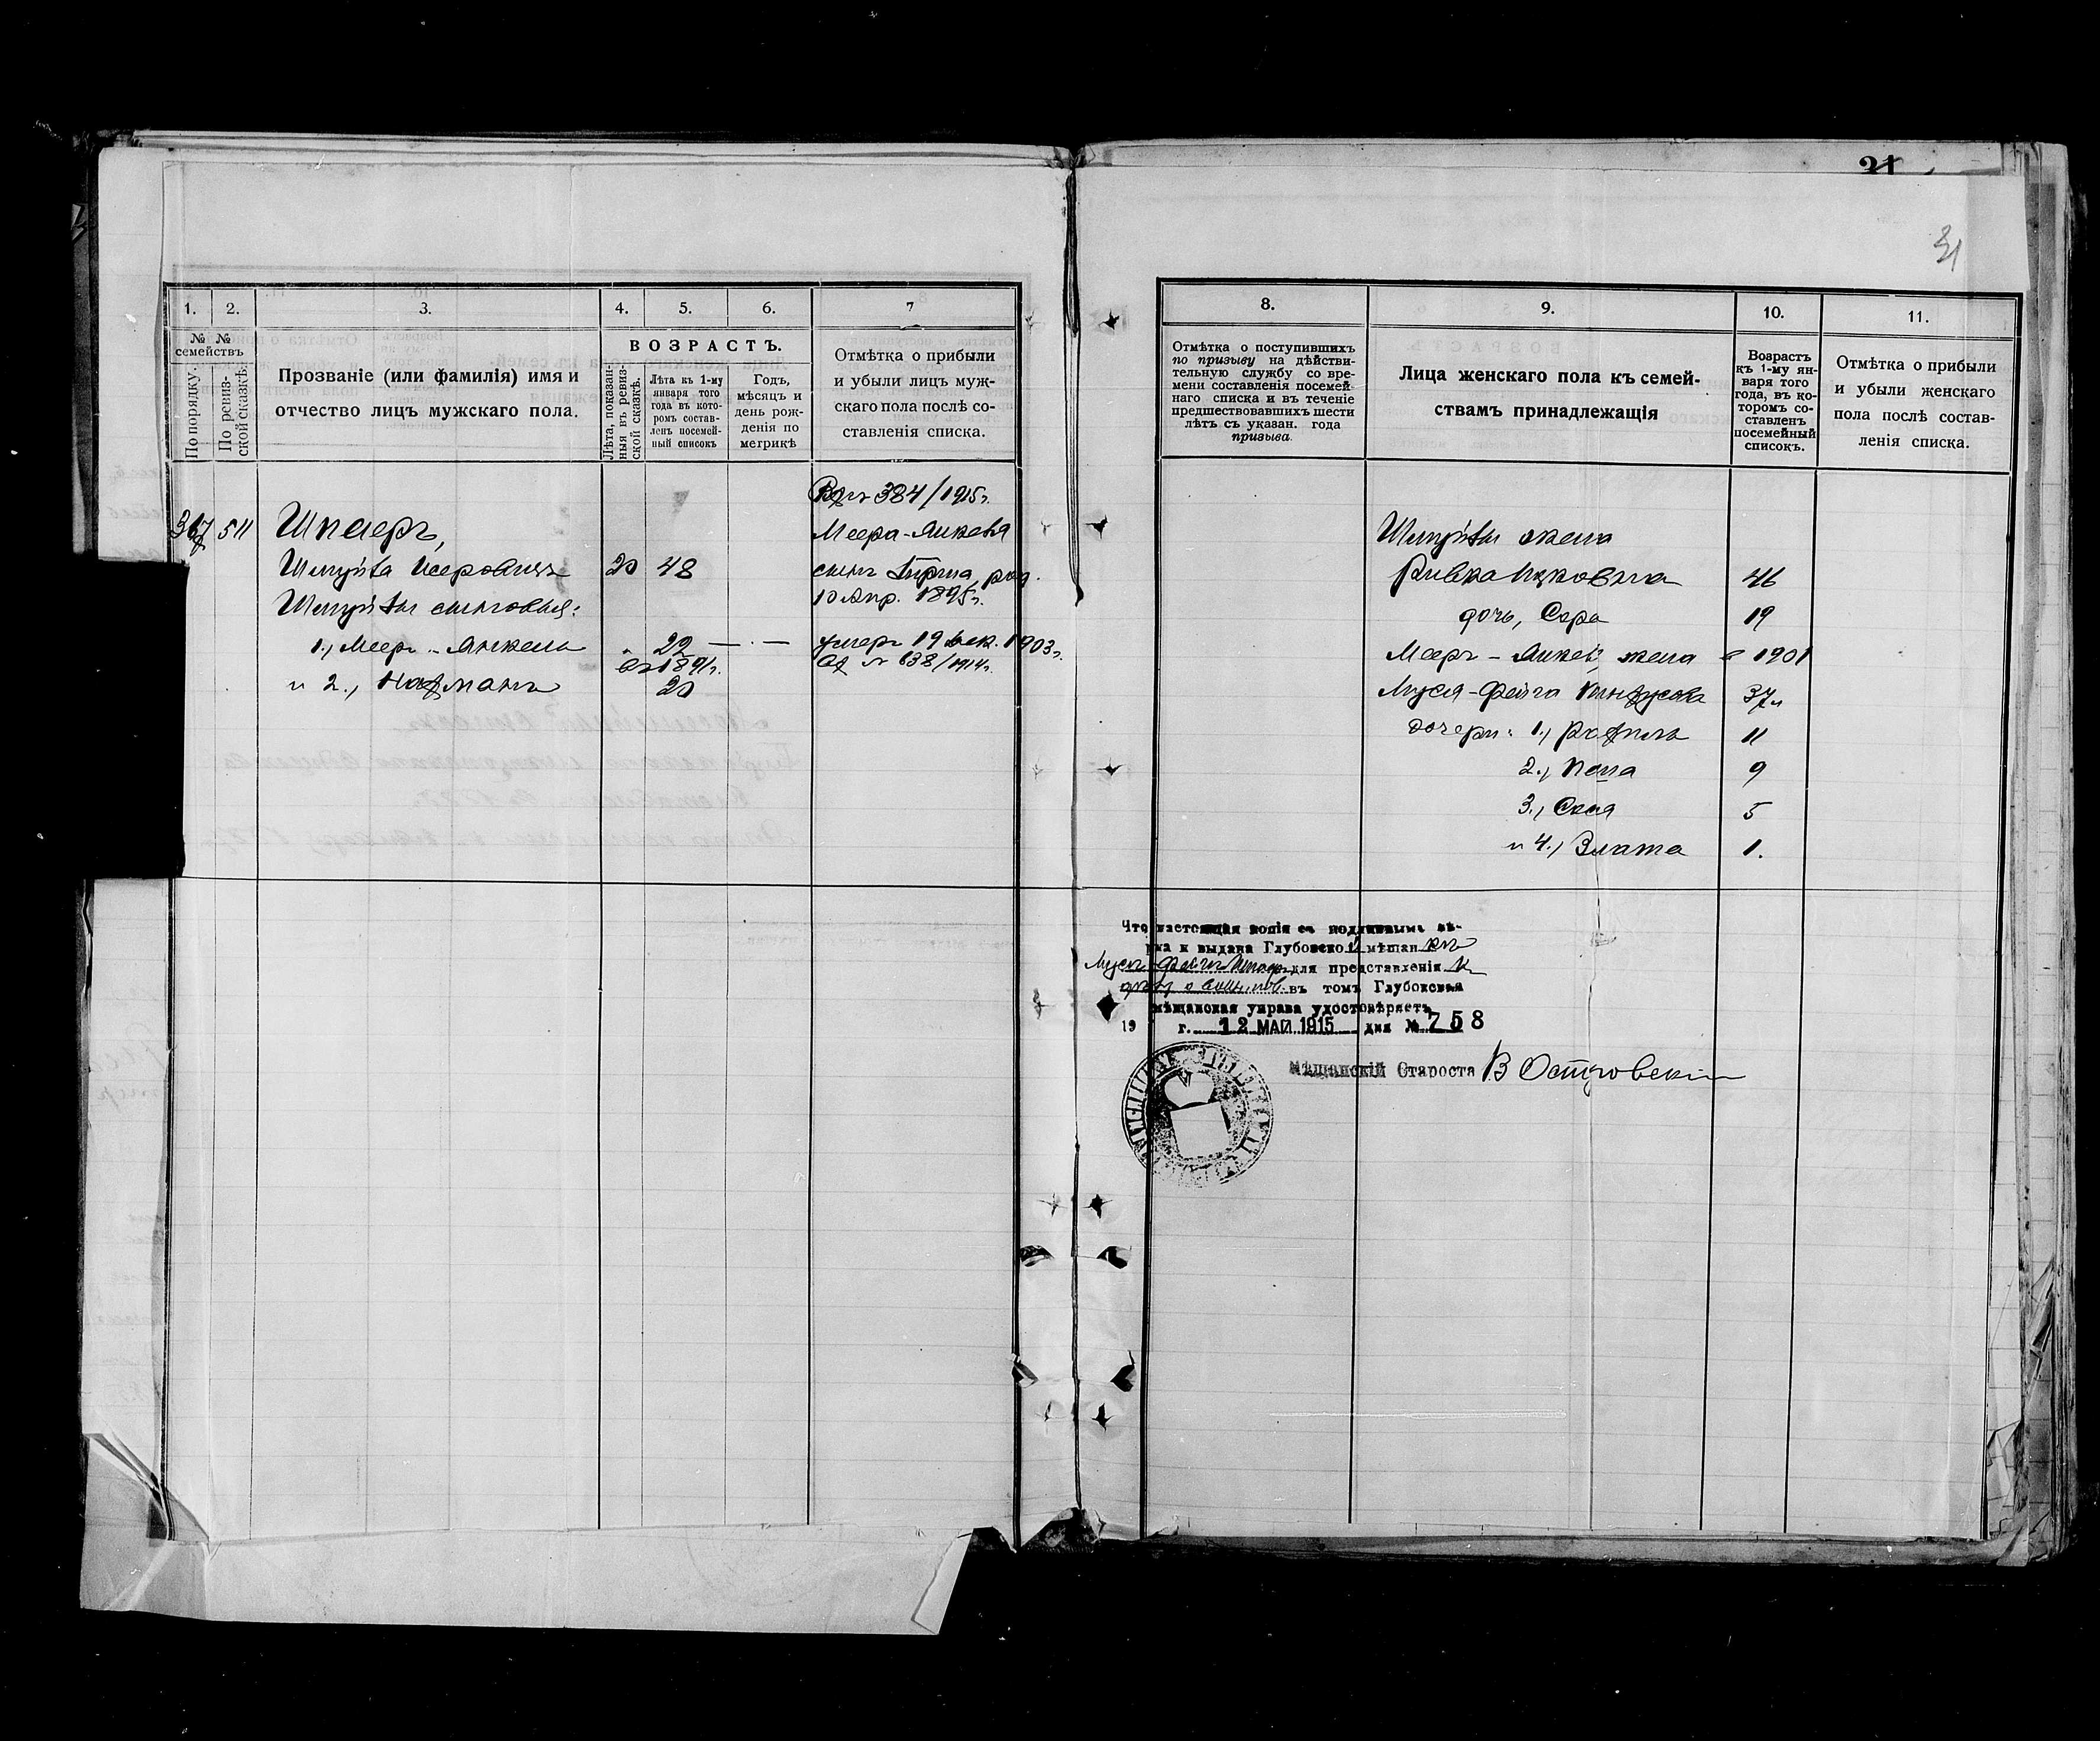 31
31
1.
2.
3.
4.
5.
6.
7
№ №
семействъ
По порядку.
По ревиз-
ской сказкѣ.
Прозваніе (или фамилія) имя и
отчество лицъ мужскаго пола.
ВОЗРАСТЪ.
Лѣта, показан-
ныя въ ревиз-
ской сказкѣ.
Лѣта къ 1-му
января того
года въ кото-
ромъ состав-
ленъ посемей-
ный списокъ
Годъ,
мѣсяцъ и
день рож-
денія по
метрикѣ
Отмѣтка о прибыли
и убыли лицъ муж-
скаго пола послѣ со-
ставленія списка.
384/1915г.
367 511 Шпаеръ, Меера-Янкеля
Шмуйла Исеровичъ 20 48 сынъ Гирша, род.
Шмуйлы сыновья: 10 Апр. 1895г.
1., Меер-Янкель 22 умеръ 19 дек. 1903г.
въ 1891г. № 638/1914г.
и 2., Нахманъ 20
8.
9.
10.
11.
Отмѣтка о поступившихъ
по призыву на дѣйстви-
тельную службу со вре-
мени составленія посемей-
наго списка и въ теченіе
предшествовавшихъ шести
лѣтъ съ указан. года
призыва.
Лица женскаго пола къ семей-
ствамъ принадлежащія
Возрастъ
къ 1-му ян-
варя того
года, въ ко-
торомъ со-
ставленъ
посемейный
списокъ.
Отмѣтка о прибыли
и убыли женскаго
пола послѣ состав-
ленія списка.
Шмуйлы жена
Ривка Ицковна 46
дочь, Сора 19
Мееръ-Янкел. жена в 1901
Муся-Фейга 37
дочери: 1., Рохиль 11
2., Пеша 9
3., Соня 5
и 4., Злата 1.
Что настоящая копія съ подлиннымъ вѣ-
рна и выдана Глубокской мѣщан кѣ
Мусѣ-Фейгѣ Шпаеръ для представленія въ
въ томъ Глубокская
мѣщанская управа удостовѣряетъ
19 г. 12 МАЙ 1915 дня № 758
Мѣщанскій Староста В Островскій